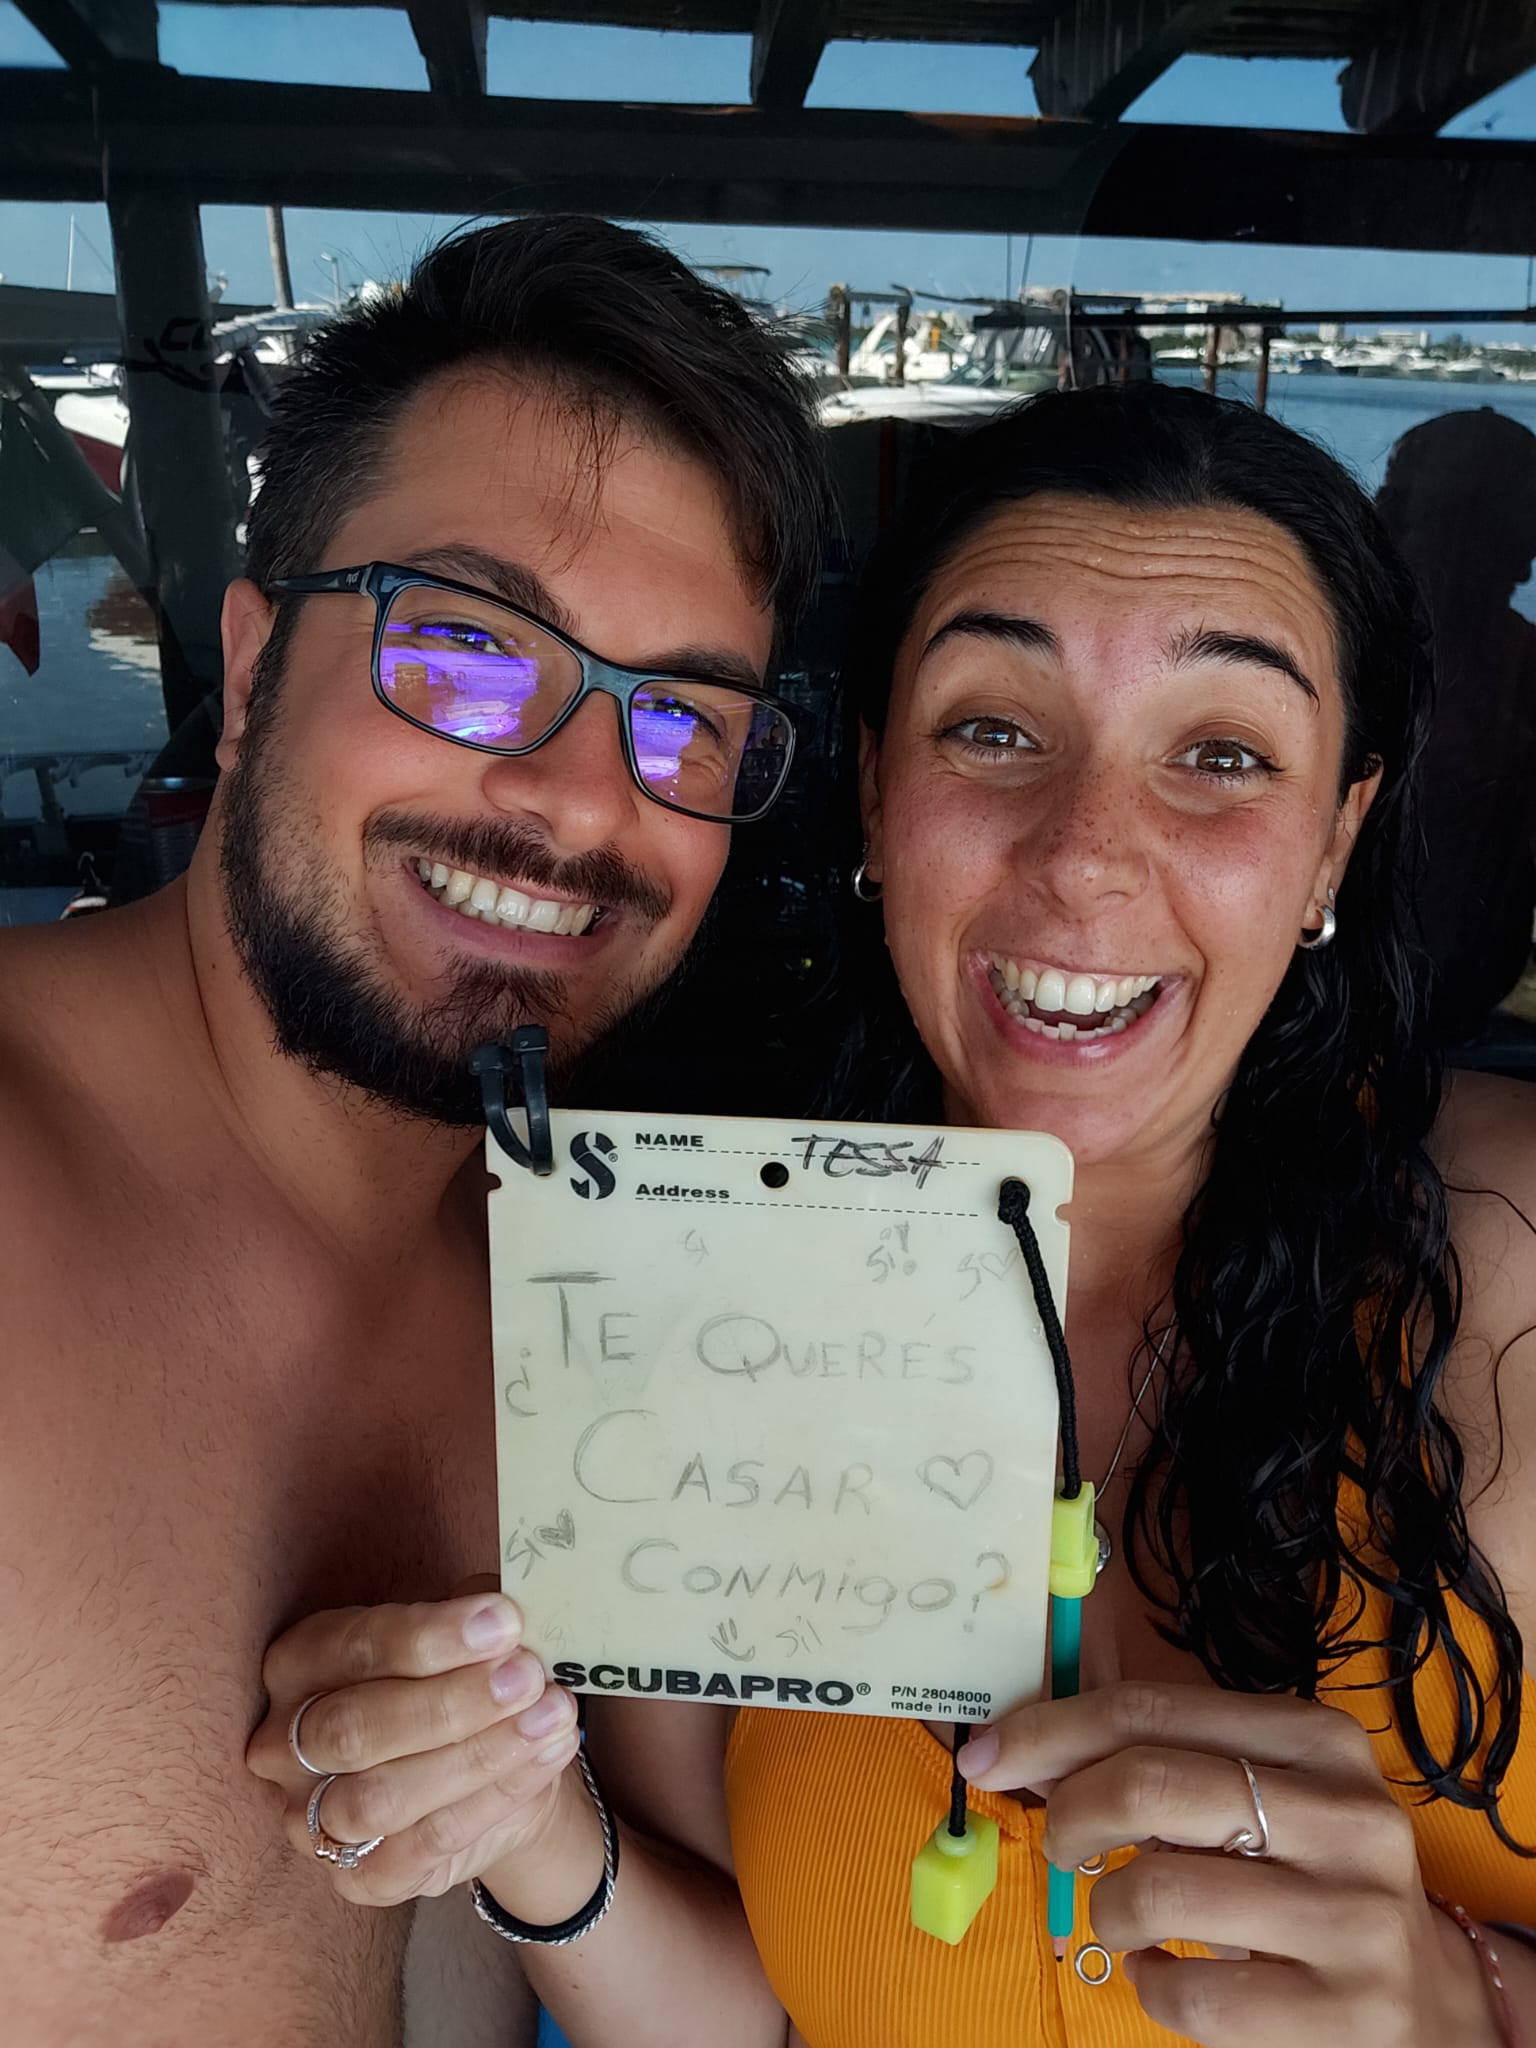 NAME TESSA
Address
si si! si
¿TE QUERÉS
CASAR
CONMIGO?
si
si!
SCUBAPRO®
P/N 28048000
made in italy